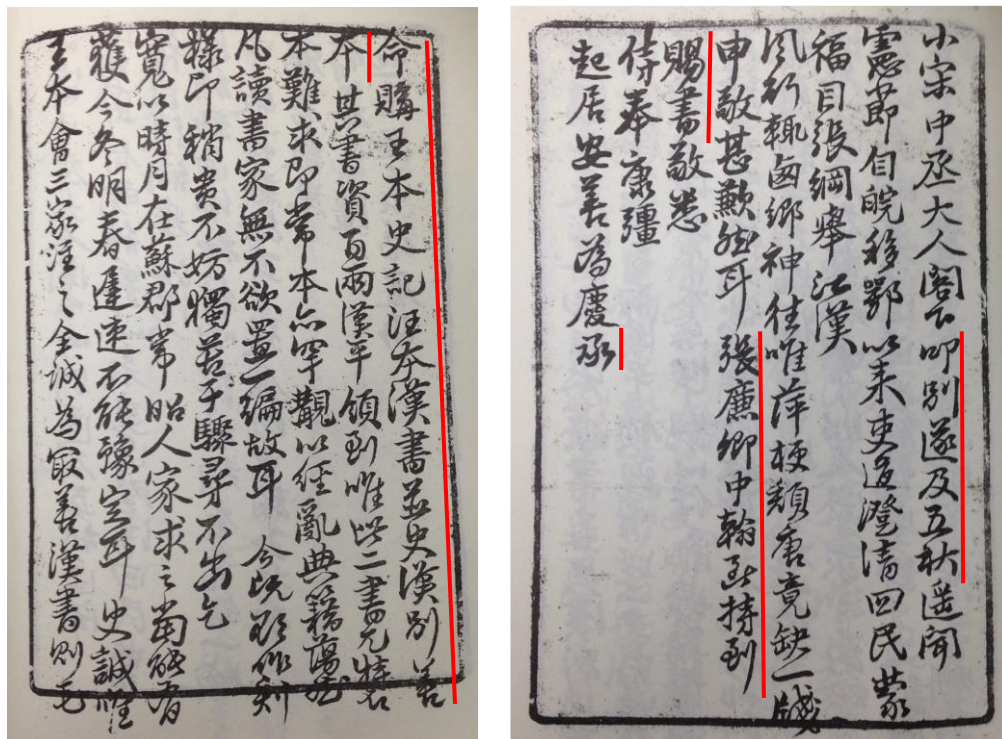 小宋中丞大人閣下叩別遂及五秋遙聞
憲節自皖移鄂以來吏道澄清四民蒙
福目張綱舉江漢
風行輒西鄉神往唯萍梗頹唐竟缺一牋
申敬甚歉然耳張廉卿中翰函持到
賜書敬悉
侍奉康彊
起居安善為慶承
命購王本史記汪本漢書並史漢別善
本其書資百兩漢平領到唯此二書
本難求即常本亦罕覯以經亂典籍蕩然
凡讀書家無不欲置一編故耳今既
樣即稍貴不妨獨苦于驟尋不出乞
寬以時月在蘇郡常昭人家求之當能有
獲今冬明春遲速不能豫定耳史誠唯
王本會三家注之全誠為最善漢書則毛